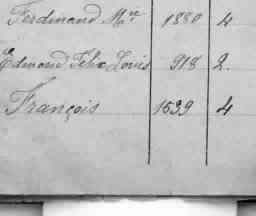 Ferdinand M.ie 1880 4
Edmond Felix Louis 918 2.
François 1539 4